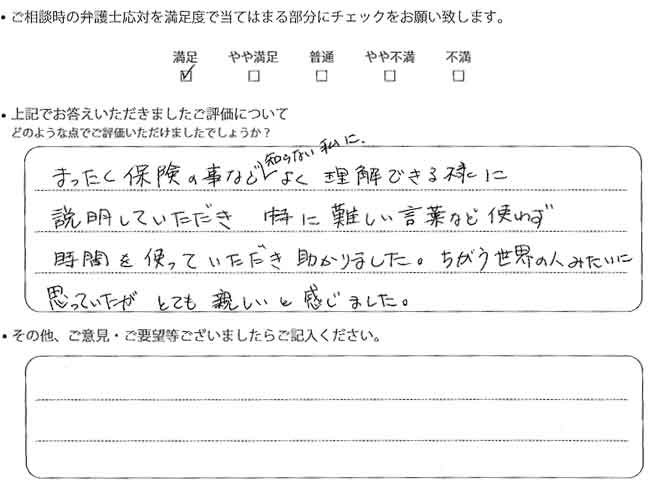 ・ご相談時の弁護士応対を満足度で当てはまる部分にチェックをお願い致します。
満足 やや満足 普通 やや不満 不満
・上記でお答えいただきましたご評価について
どのような点でご評価いただけましたでしょうか？
知らない私に、
まったく保険の事などよく理解できる様に
説明していただき 特に難しい言葉など使わず
時間を使っていただき助かりました。ちがう世界の人みたいに
思っていたがとても親しいと感じました。
・その他、ご意見・ご要望等ございましたらご記入ください。